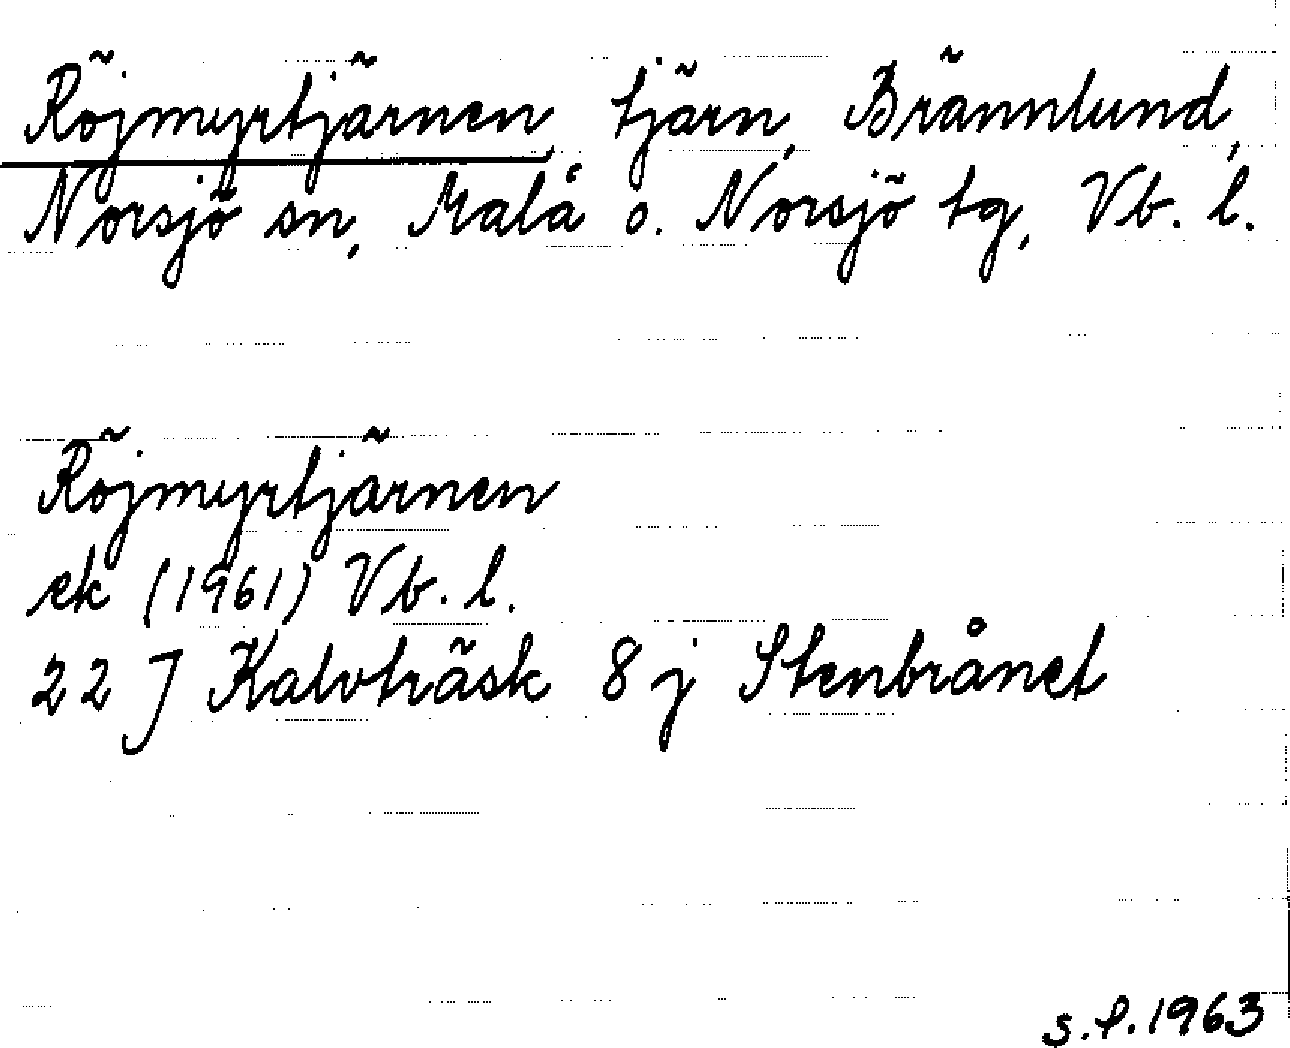 Röjmyrtjärnen, tjärn, Brännlund,
Norsjö sn, Malå o. Norsjö tg, Vb. l.
Röjmyrtjärnen
ek (1961) Vb. l.
22 J Kalvträsk 8 j Stenbrånet
S.P. 1963